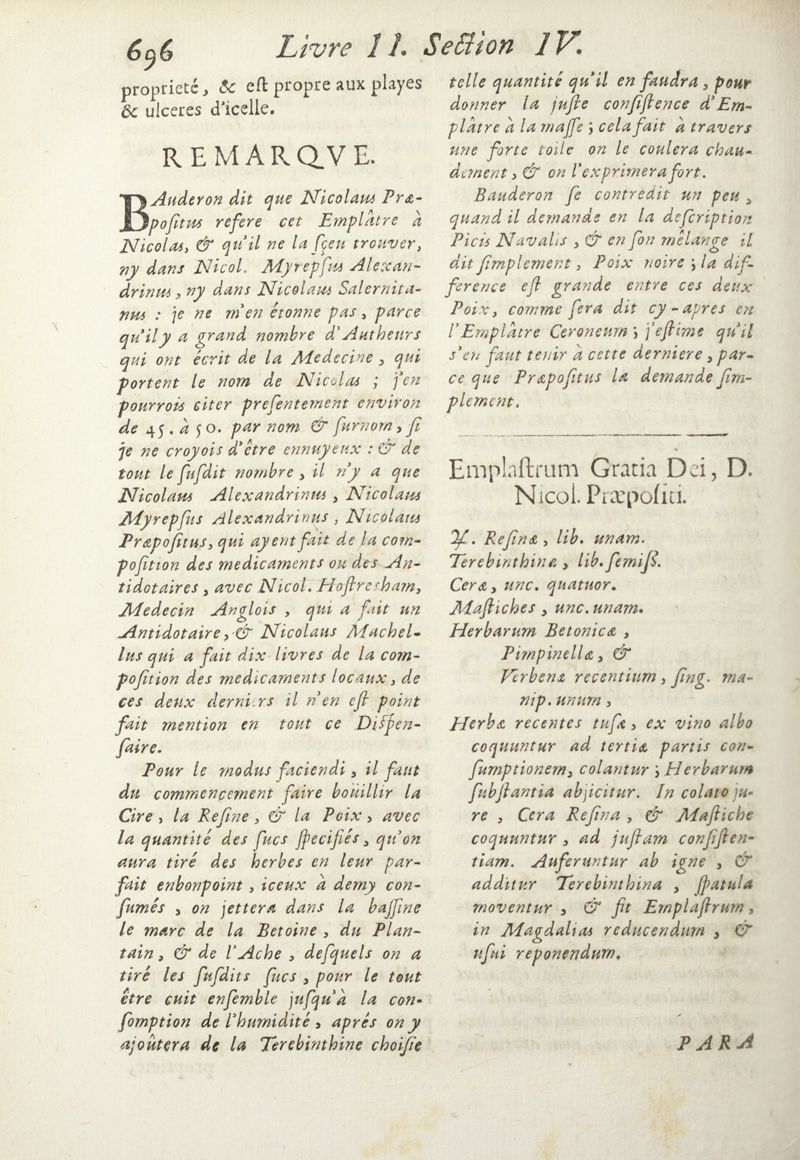 696 Livre II. Section IV.
proprieté, & eſt propre aux playes
& ulceres d'icelle.
REMARQVE.
BAuderon dit que Nicolaus Præ-
poſitus refere cet Emplâtre à
Nicolas, & qu'il ne la ſçeu trouver,
ny dans Nicol. Myrepſus Alexan-
drinus, ny dans Nicolaus Salernita-
nus : je ne m'en étonne pas, parce
qu'il y a grand nombre d'Autheurs
qui ont écrit de la Medecine, qui
portent le nom de Nicolas ; j'en
pourrois citer preſentement environ
de 45. à 50. par nom & ſurnom, ſi
je ne croyois d'être ennuyeux : & de
tout le ſuſdit nombre, il n'y a que
Nicolaus Alexandrinus, Nicolaus
Myrepſus Alexandrinus, Nicolaus
Præpoſitus, qui ayent fait de la com-
poſition des medicaments ou des An-
tidotaires, avec Nicol. Hoſtresham,
Medecin Anglois, qui a fait un
Antidotaire, & Nicolaus Machel-
lus qui a fait dix livres de la com-
poſition des medicaments locaux, de
ces deux derniers il n'en eſt point
fait mention en tout ce Diſpen-
ſaire.
Pour le modus faciendi, il faut
du commencement faire boüillir la
Cire, la Reſine, & la Poix, avec
la quantité des ſucs ſpecifiés, qu'on
aura tiré des herbes en leur par-
fait enbonpoint, iceux à demy con-
ſumés, on jettera dans la baſſine
le marc de la Betoine, du Plan-
tain, & de l'Ache, deſquels on a
tiré les ſuſdits ſucs, pour le tout
être cuit enſemble juſqu'à la con-
ſomption de l'humidité, aprés on y
ajoûtera de la Terebinthine choiſie
telle quantité qu'il en faudra, pour
donner la juſte conſiſtence d'Em-
plâtre à la maſſe ; cela fait à travers
une forte toile on le coulera chau-
dement, & on l'exprimera fort.
Bauderon ſe contredit un peu,
quand il demande en la deſcription
Picis Navalis, & en ſon mélange il
dit ſimplement, Poix noire ; la dif-
ference eſt grande entre ces deux
Poix, comme ſera dit cy-apres en
l'Emplâtre Ceroneum ; j'eſtime qu'il
s'en faut tenir à cette derniere, par-
ce que Præpoſitus la demande ſim-
plement.
Emplaſtrum Gratia Dei, D.
Nicol. Præpoſiti.
℞. Reſinæ, lib. unam.
Terebinthinæ, lib. ſemiſſ.
Ceræ, unc. quatuor.
Maſtiches, unc. unam.
Herbarum Betonicæ,
Pimpinellæ, &
Verbenæ recentium, ſing. ma-
nip. unum,
Herbæ recentes tuſæ, ex vino albo
coquuntur ad tertiæ partis con-
ſumptionem, colantur ; Herbarum
ſubſtantia abjicitur. In colato ju-
re, Cera Reſina, & Maſtiche
coquuntur, ad juſtam conſiſten-
tiam. Auferuntur ab igne, &
additur Terebinthina, ſpatula
moventur, & fit Emplaſtrum,
in Magdalias reducendum, &
uſui reponendum.
PARA